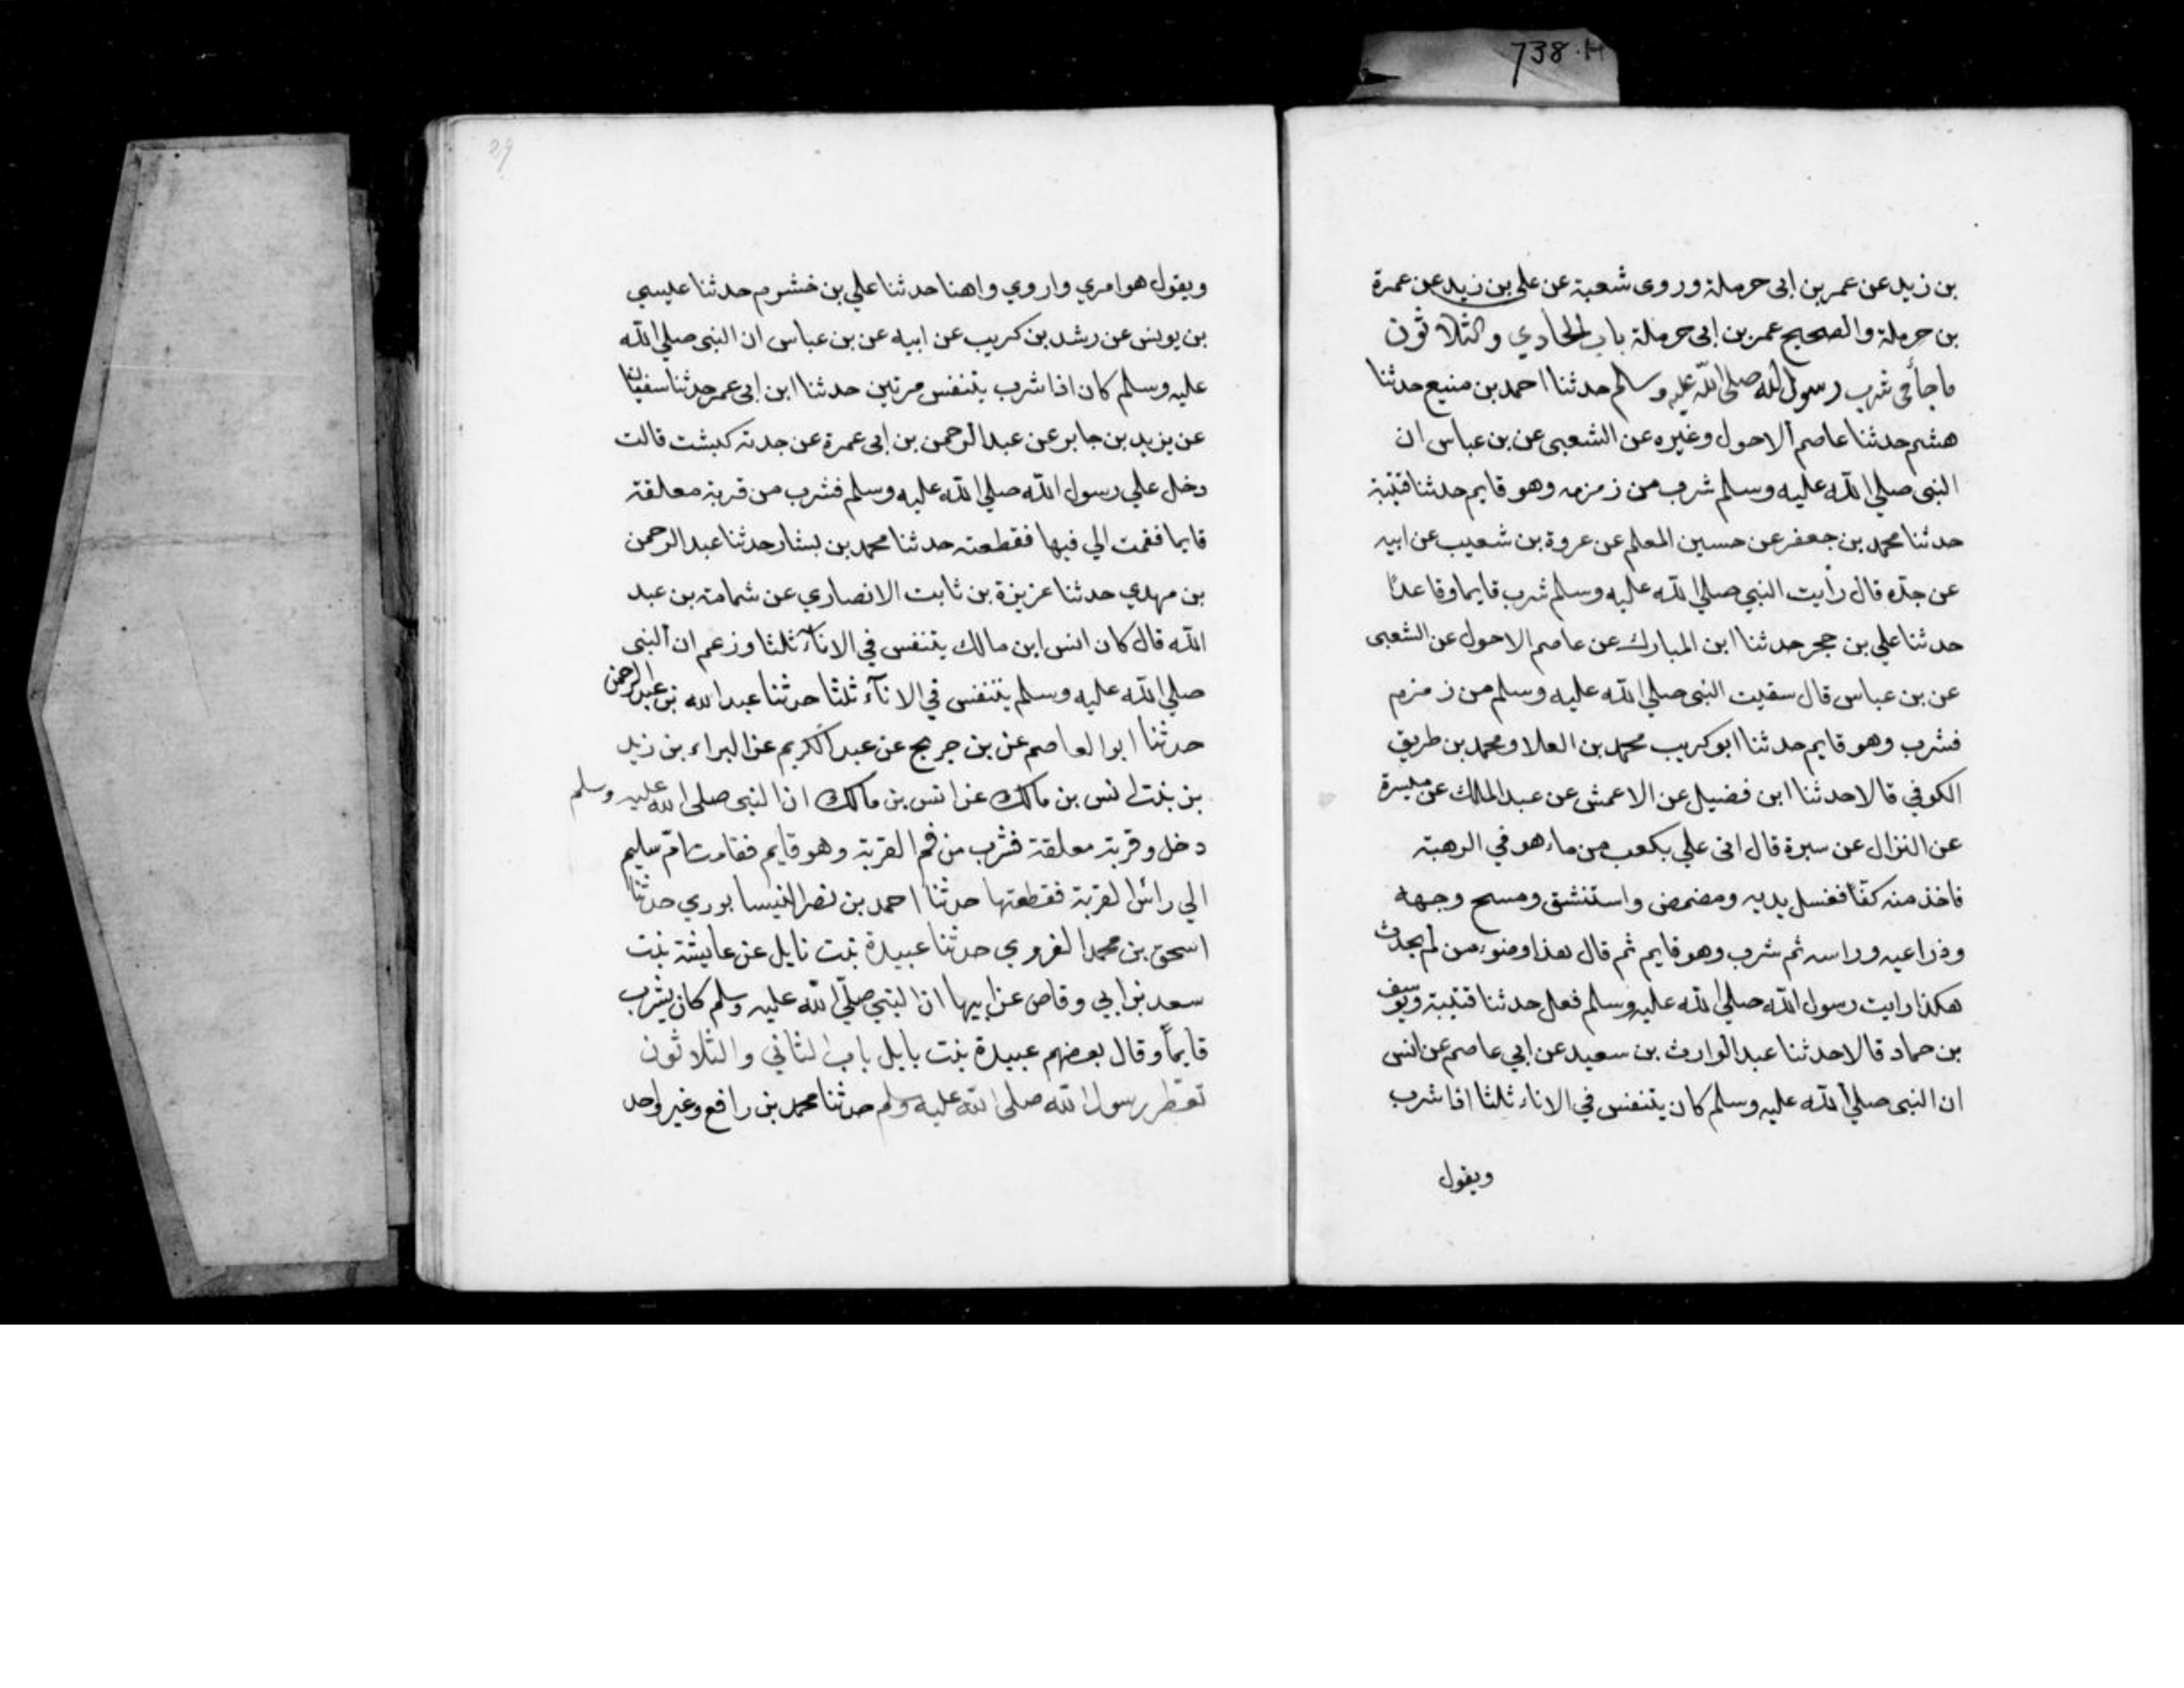 738.H
بن زيد عن عمر بن ابى حرملة وروى شعبة عن على بن زيد عن عمرة
بن حرملة والصحيح عمر بن ابى حرملة باب الحادي والثلاثون
ماجأ في شرب رسول الله صلى الله عليه وسالم حدثنا احمد بن منيع حدثنا
هشم حدثنا عاصم الاحول وغيره عن الشعبى عن بن عباس ان
النبى صلي الله عليه وسلم شرب من زمزمه وهو قايم حدثنا قتيبة
حدثنا محمد بن جعفر عن حسين المعلم عن عروة بن شعيب عن ابيه
عن جدّه قال رأيت النبي صلي الله عليه وسلم شرب قايما وقاعدًا
حدثنا علي بن حجر حدثنا ابن المبارك عن عاصم الاحول عن الشعبى
عن بن عباس قال سقيت النبى صلي الله عليه وسلم من زمزم
فشرب وهو قايم حدثنا ابو كريب محمد بن العلا ومحمد بن طريق
الكوفي قالا حدثنا ابن فضيل عن الاعمش عن عبد الملك عن ميسرة
عن النزال عن سبرة قال اتى علي بكعب من ماء هو في الرهبة
فاخذ منه كفًا فغسل يديه ومضمض واستنشق ومسح وجهه
وذراعيه وراسه ثم شرب وهو قايم ثم قال هذا وضوء من لم يحدث
هكذا رايت رسول الله صلي الله عليه وسلم فعل حدثنا قتيبة ويوسف
بن حماد قالا حدثنا عبد الوارث بن سعيد عن ابي عاصم عن انس
ان النبى صلي الله عليه وسلم كان يتنفس في الاناء ثلثا اذا شرب
ويقول
29
ويقول هو امري واروي واهنا حدثنا علي بن خشرم حدثنا عليسي
بن يونس عن رشد بن كريب عن ابيه عن بن عباس ان النبى صلي الله
عليه وسلم كان اذا شرب يتنفس مرتين حدثنا ابن ابى عمر حدثنا سفيان
عن يزيد بن جابر عن عبد الرحمن بن ابى عمرة عن جدته كبشت قالت
دخل علي رسول الله صلي الله عليه وسلم فشرب من قربة معلقة
قايما فقمت الي فيها فقطعته حدثنا محمد بن بشار حدثنا عبد الرحمن
بن مهدي حدثنا عزيزة بن ثابت الانصاري عن شمامة بن عبد
الله قال كان انس ابن مالك يتنفس في الانآء ثلثا وزعم ان النبى
صلي الله عليه وسلم يتنفس في الانآء ثلثا حدثنا عبد الله بن عبد الرحمن
حدثنا ابو العاصم عن بن جريج عن عبد الكريم عن البراء بن زيد
بن بنت انس بن مالك عن انس بن مالك ان النبى صلى الله عليه وسلم
دخل وقربة معلقة فشرب من فم القربة وهو قايم فقامت امّ سليم
الي رائس القربة فقطعتها حدثنا احمد بن نصر النيسابوري حدثنا
اسحق بن محمد الفروي حدثنا عبيدة بنت نايل عن عايشة بنت
سعد بن ابي وقاص عن ابيها ان النبي صلّي الله عليه وسلم كان يشرب
قايماً وقال بعضهم عبيدة بنت بايل باب الثاني والثلاثون
تعطر رسول الله صلى الله عليه وسلم حدثنا محمد بن رافع وغير واحد